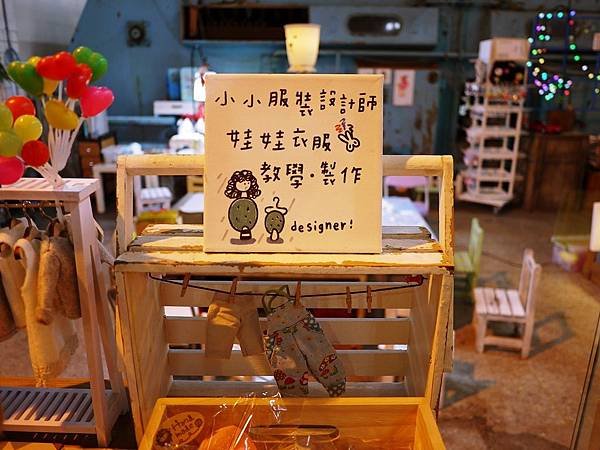 小小服裝設計師
娃娃衣服
教學·製作
designer!
Hand
made